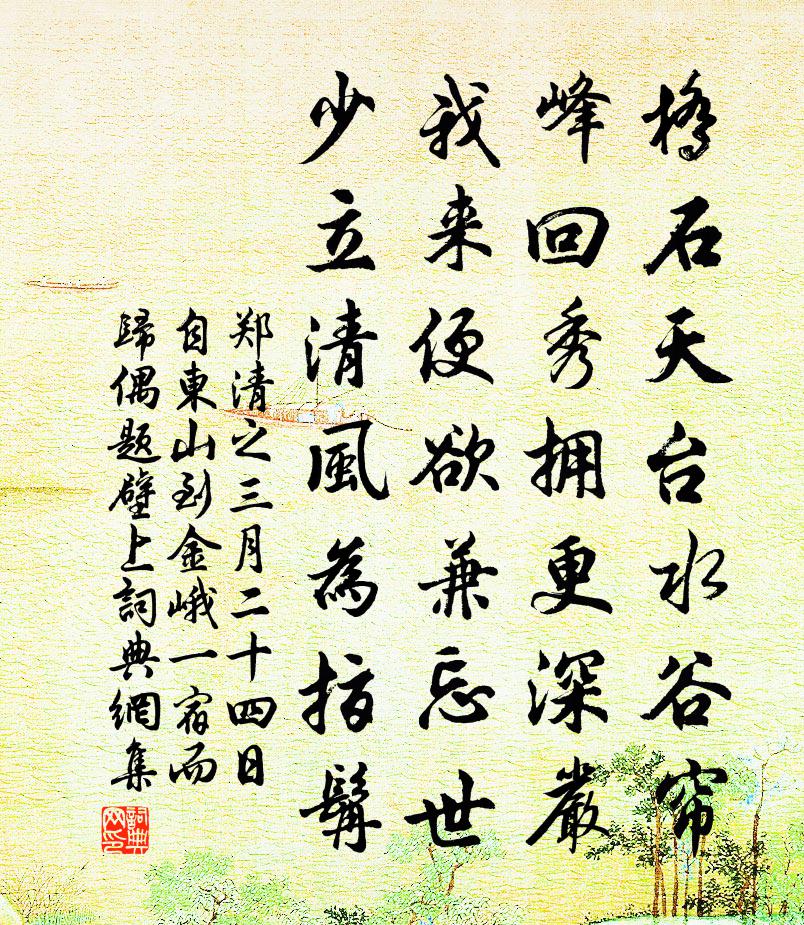 橋石天台水谷帘
峰回秀拥更深嚴
我来便欲兼忘世
少立清風為指髯
郑清之三月二十四日
自東山到金峨一宿而
歸偶题壁上詞典網集
詞典網印